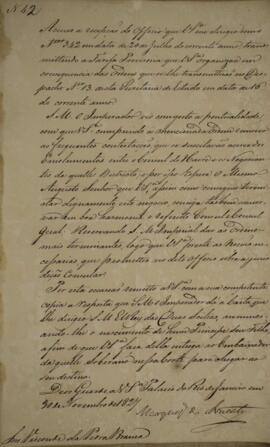 N 42
Accuso a recepção do Officio que V.S.ª me dirigio com o
N.º 342 em data de 20 de Julho do corrente anno, trans-
mittindo a Tarifa Provisoria que V.S.ª organizou em
consequencia das Ordens que se lhe transmittirão em Des-
pacho N.º 13 desta Secretaria de Estado em data de 15
do corrente anno.
S. M. O Imperador vio com gosto a pontualidade
com que V.S.ª cumprindo a
as frequentes contestações que se suscitavão acerca dos
Emolumentos entre o Consul do Havre e os Negocian-
tes daquelle Districto; e por isso Espera O Mesmo
Augusto Senhor que V.S.ª, assim como conseguio termi-
nar dignamente este negocio, consiga tambem conser-
var em boa harmonia o respectivo Consul
Geral. Reservando S. M. Imperial dar as Ordens
mais terminantes, logo que V.S.ª preste as
cessarias que prometteu neste Officio sobre a
dicto Consular.
Por esta occasião remetto a V.S.ª com a sua competente
copia a resposta que S. M. O Imperador dá à Carta que
lhe dirigio S. M. ElRey das Duas Sicilias, annunci-
ando-lhe o nascimento de hum Principe Seu Filho,
a fim de que V.S.ª faça della entrega ao Embaixador
daquelle Soberano nessa Corte para chegar ao
seu destino.
Deos Guarde a V.S.ª Palacio do Rio de Janeiro em
30 de Novembro de 1827
Marquez de Aracaty
Snr. Visconde da Pedra Branca